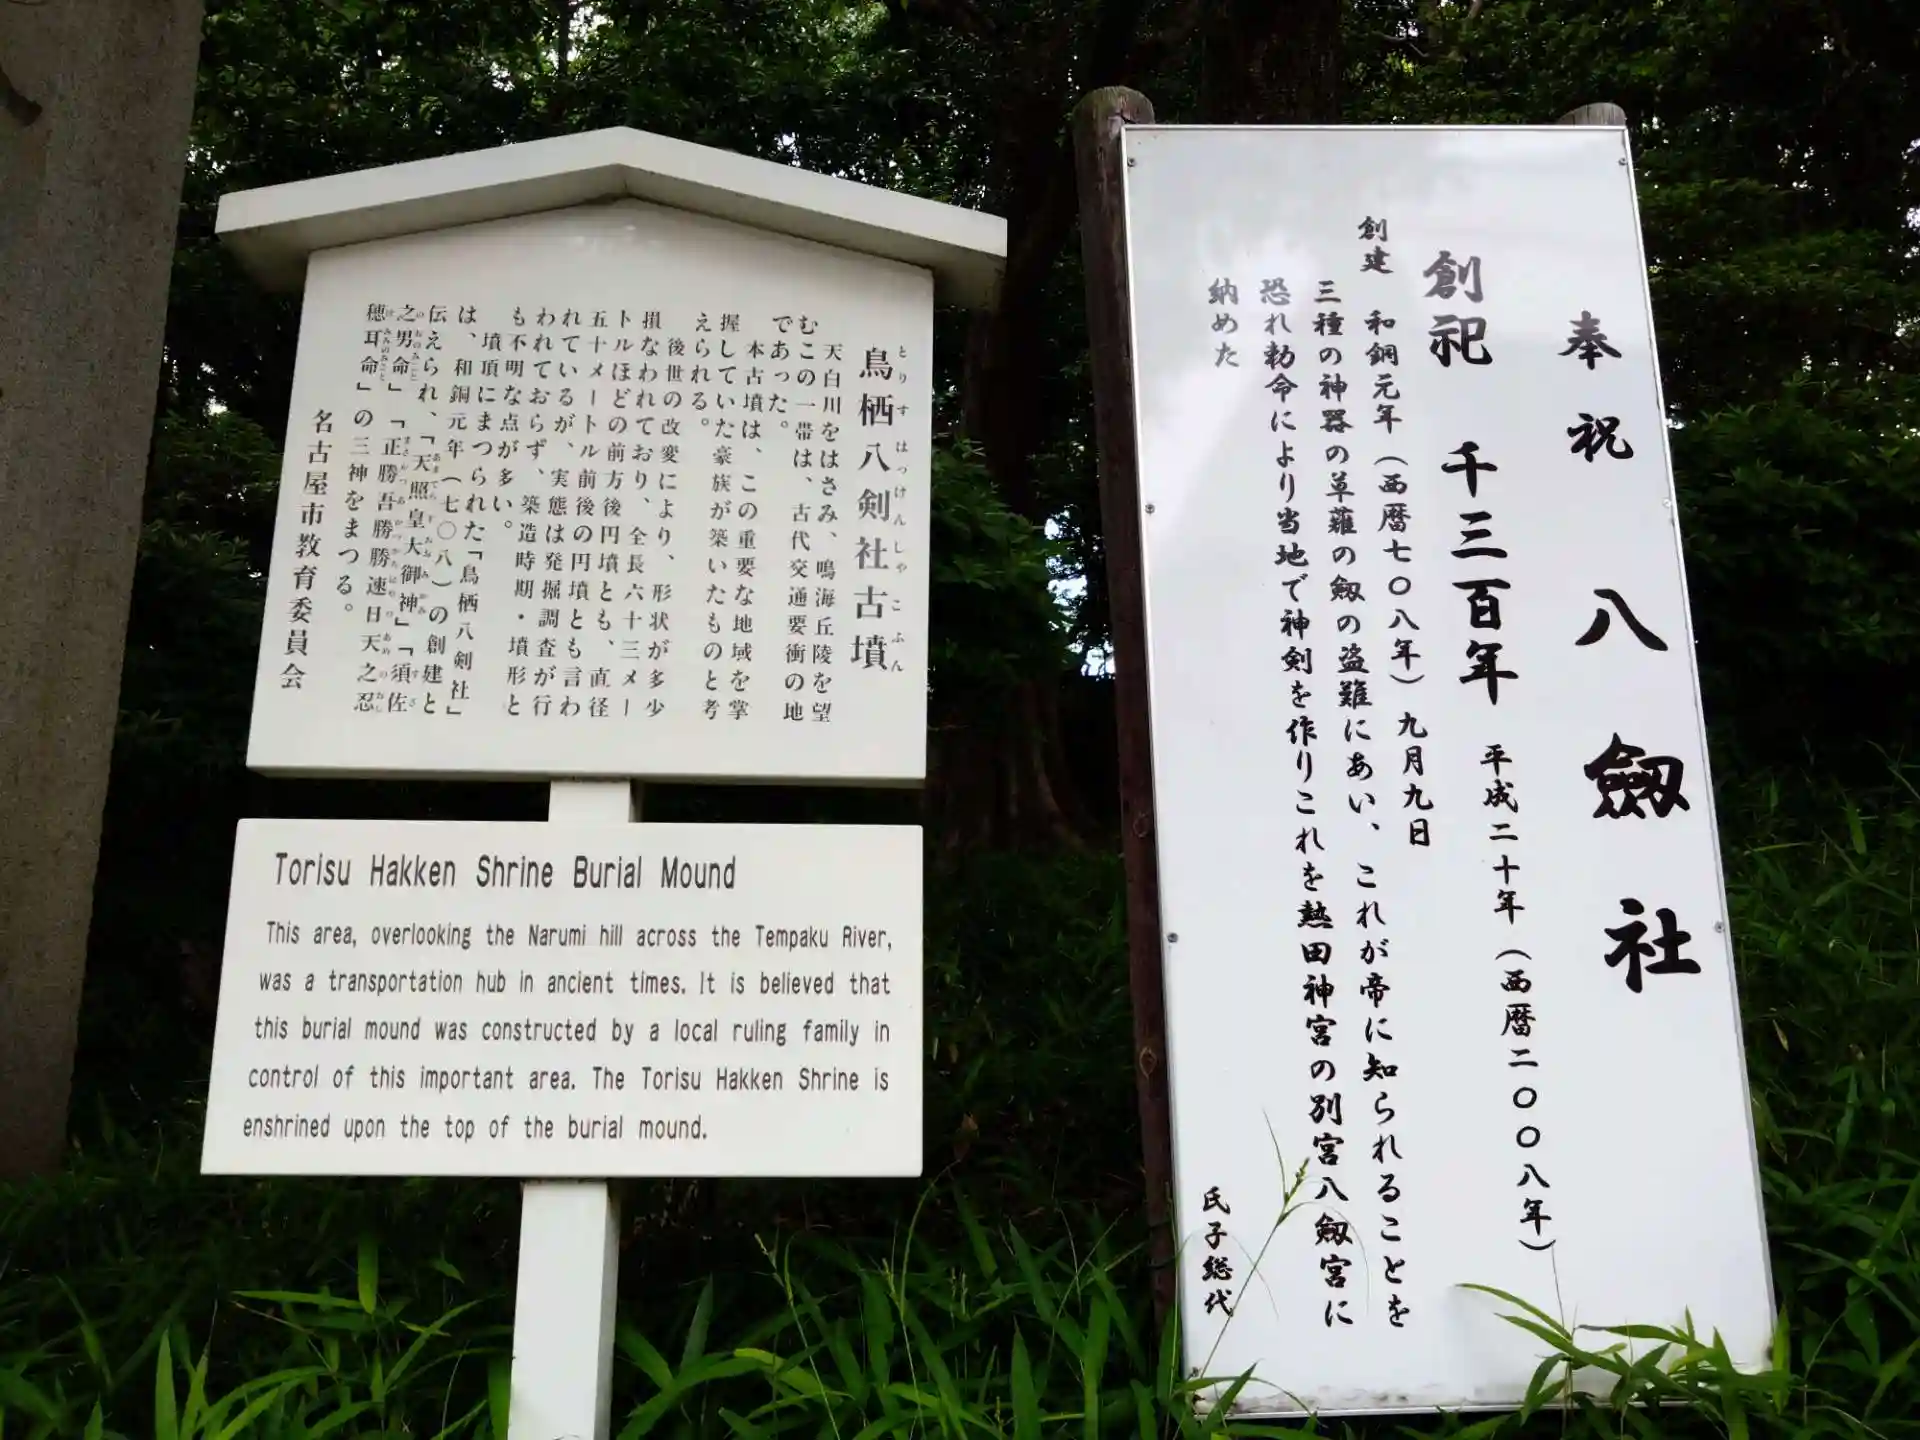 鳥栖八剣社古墳
とりすはっけんしゃこふん
天白川をはさみ、鳴海丘陵を望
むこの一帯は、古代交通要衝の地
であった。
本古墳は、この重要な地域を掌
握していた豪族が築いたものと考
えられる。
後世の改変により、形状が多少
損なわれており、全長六十三メー
トルほどの前方後円墳とも、直径
五十メートル前後の円墳とも言わ
れているが、実態は発掘調査が行
われておらず、築造時期・墳形と
も不明な点が多い。
墳頂にまつられた「鳥栖八剣社」
は、和銅元年(七〇八)の創建と
伝えられ、「天照皇大御神」「須佐
之男命」「正勝吾勝勝速日天之忍
穂耳命」の三神をまつる。
名古屋市教育委員会
Torisu Hakken Shrine Burial Mound
This area, overlooking the Narumi hill across the Tempaku River,
was a transportation hub in ancient times. It is believed that
this burial mound was constructed by a local ruling family in
control of this important area. The Torisu Hakken Shrine is
enshrined upon the top of the burial mound.
奉祝 八劔社
創祀 千三百年 平成二十年(西暦二〇〇八年)
創建 和銅元年(西暦七〇八年)九月九日
三種の神器の草薙の劔の盗難にあい、これが帝に知られることを
恐れ勅命により当地で神剣を作りこれを熱田神宮の別宮八劔宮に
納めた
氏子総代